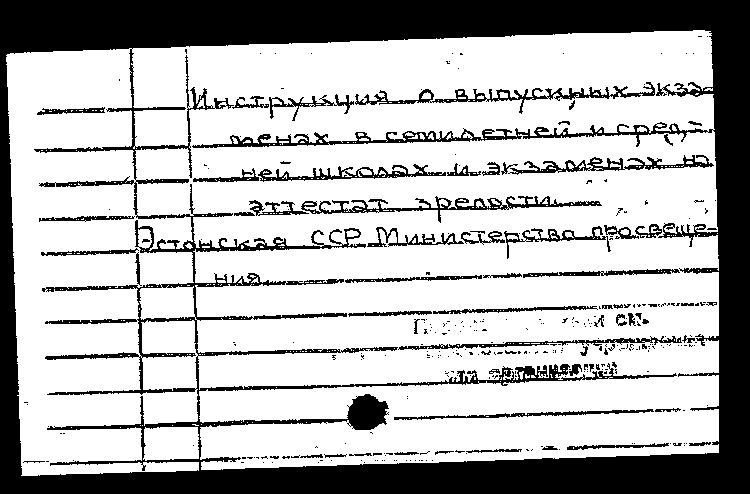 Инструкция о выпускных экза-
менах в семилетней и сред-
ней школах и экзаменах на
аттестат зрелости.
Эстонская ССР Министерство просвеще-
ния.
см.
учреждения
или организации